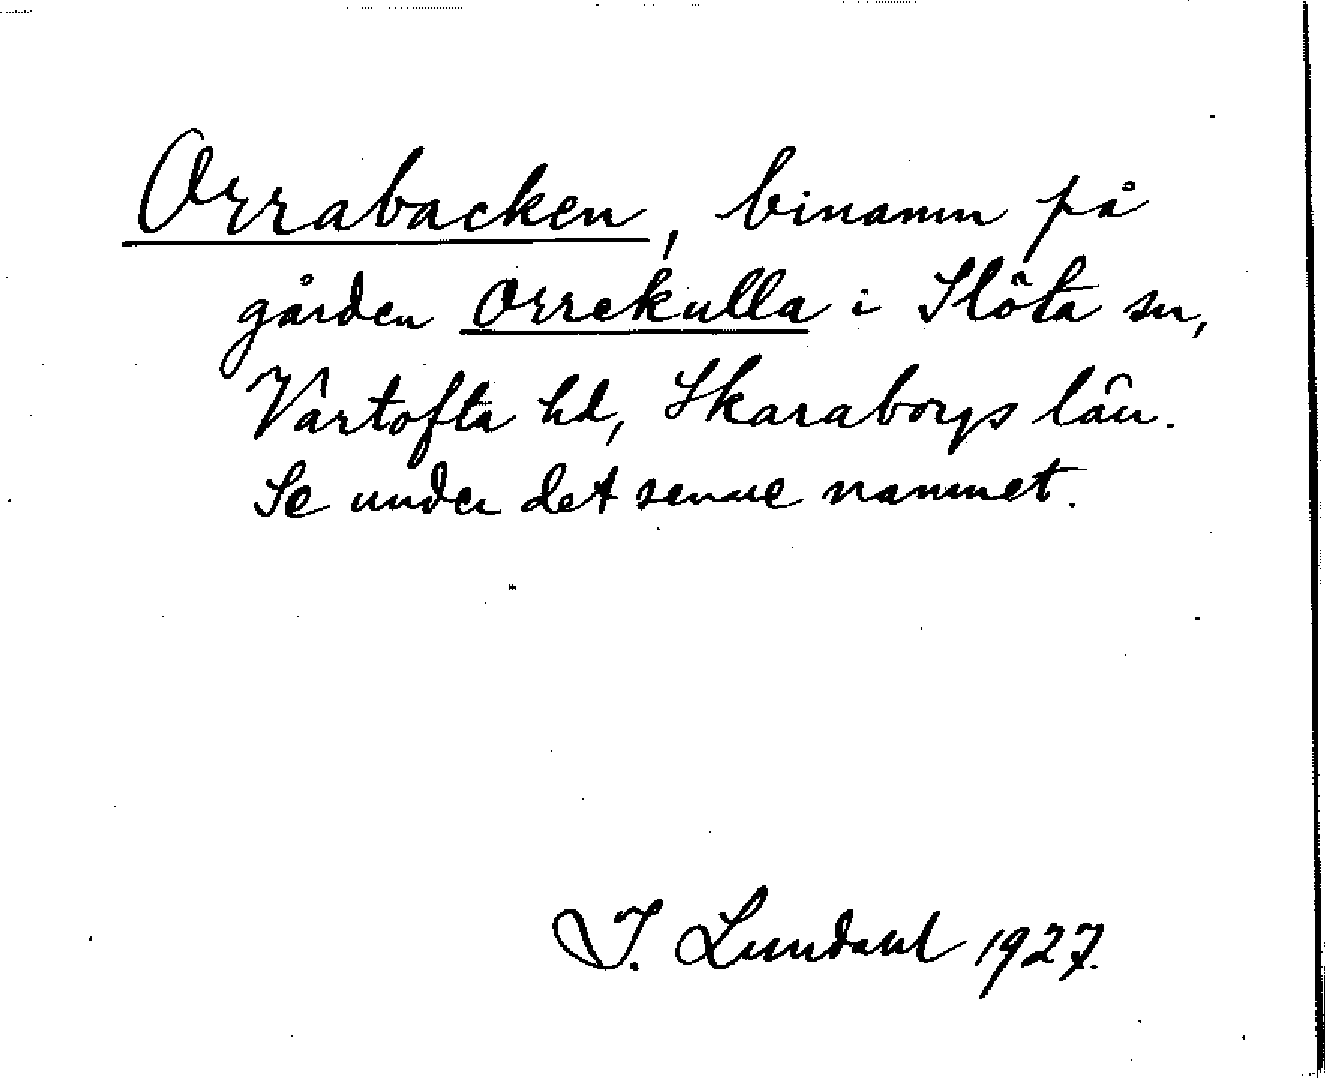 Orrabacken, binamn på
gården Orrekulla i Slöta sn,
Vartofta hd, Skaraborgs län.
Se under det senare namnet.
I. Lundahl 1927.